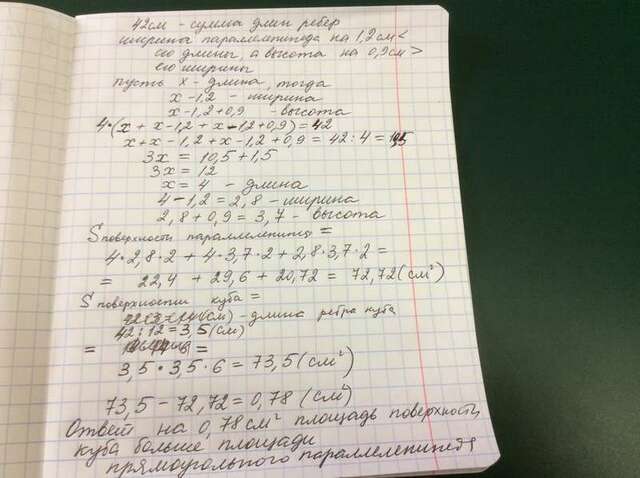 42см - сумма длин ребер
ширина параллелепипеда на 1,2см <
его длины, а высота на 0,9см >
его ширины
пусть x - длина, тогда
x - 1,2 - ширина
x - 1,2 + 0,9 - высота
4·(x + x - 1,2 + x - 1,2 + 0,9) = 42
x + x - 1,2 + x - 1,2 + 0,9 = 42 : 4 = 10,5
3x = 10,5 + 1,5
3x = 12
x = 4 - длина
4 - 1,2 = 2,8 - ширина
2,8 + 0,9 = 3,7 - высота
S поверхности параллелепип =
4·2,8·2 + 4·3,7·2 + 2,8·3,7·2 =
= 22,4 + 29,6 + 20,72 = 72,72 (см²)
S поверхности куба =
(см) - длина ребра куба
42 : 12 = 3,5 (см)
= =
3,5 · 3,5 · 6 = 73,5 (см²)
73,5 - 72,72 = 0,78 (см²)
Ответ на 0,78 см² площадь поверхности
куба больше площади
прямоугольного параллелепипеда